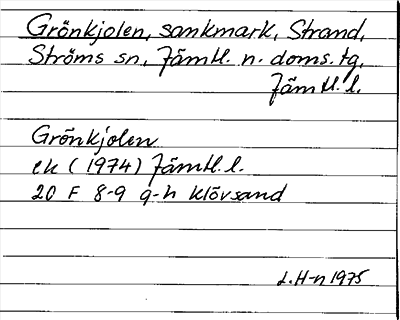 Grönkjolen, sankmark, Strand,
Ströms sn, Jämtl. n. doms. tg,
Jämtl. l.
Grönkjolen
ek (1974) Jämtl. l.
20 F 8-9 g-h Klövsand
L. H-n 1975